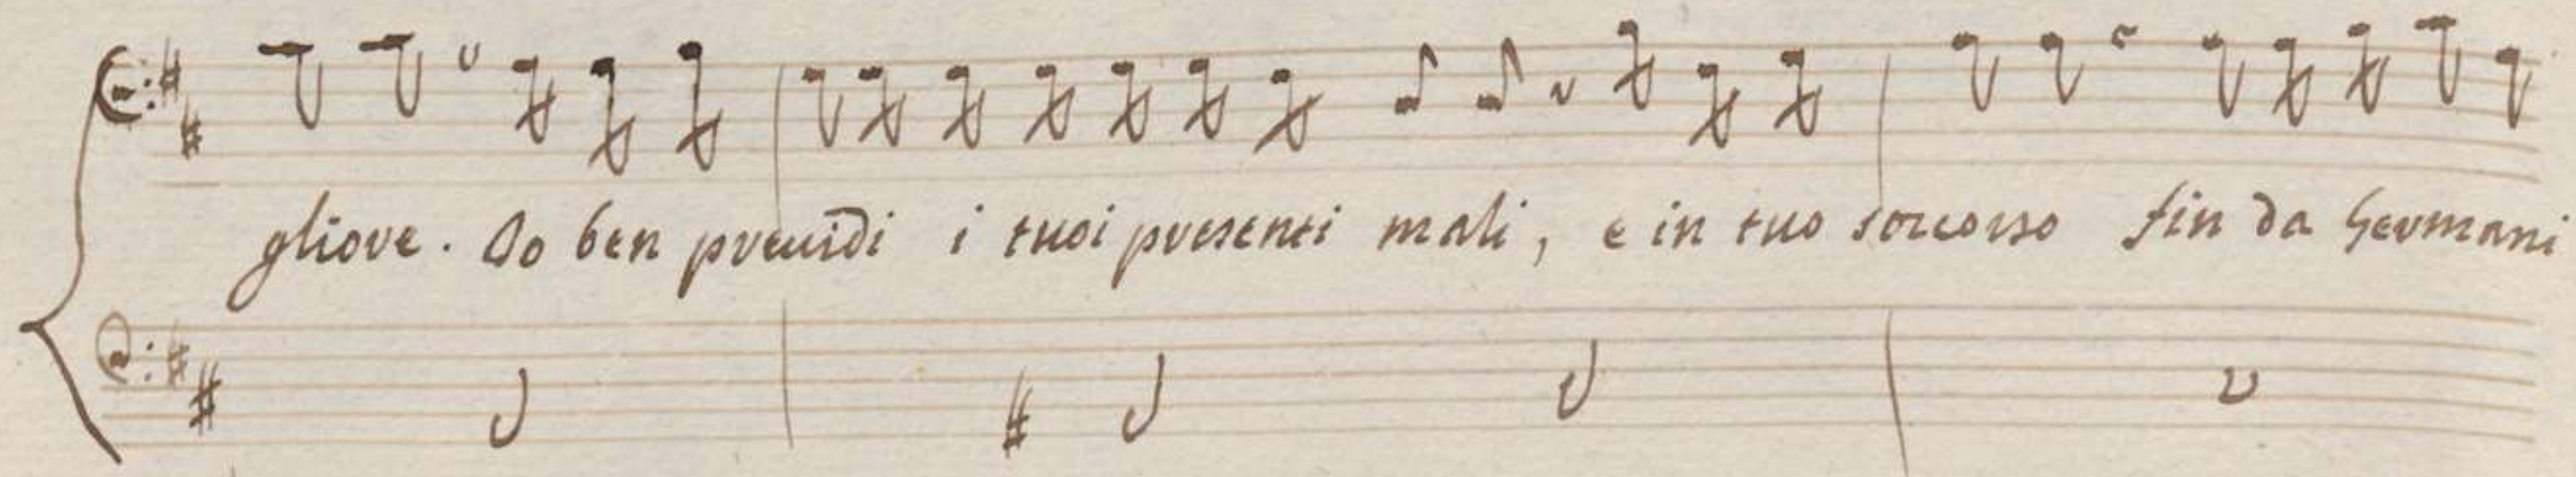 gliore. Io ben previdi i tuoi presenti mali, e in tuo soccorso fin da Germani